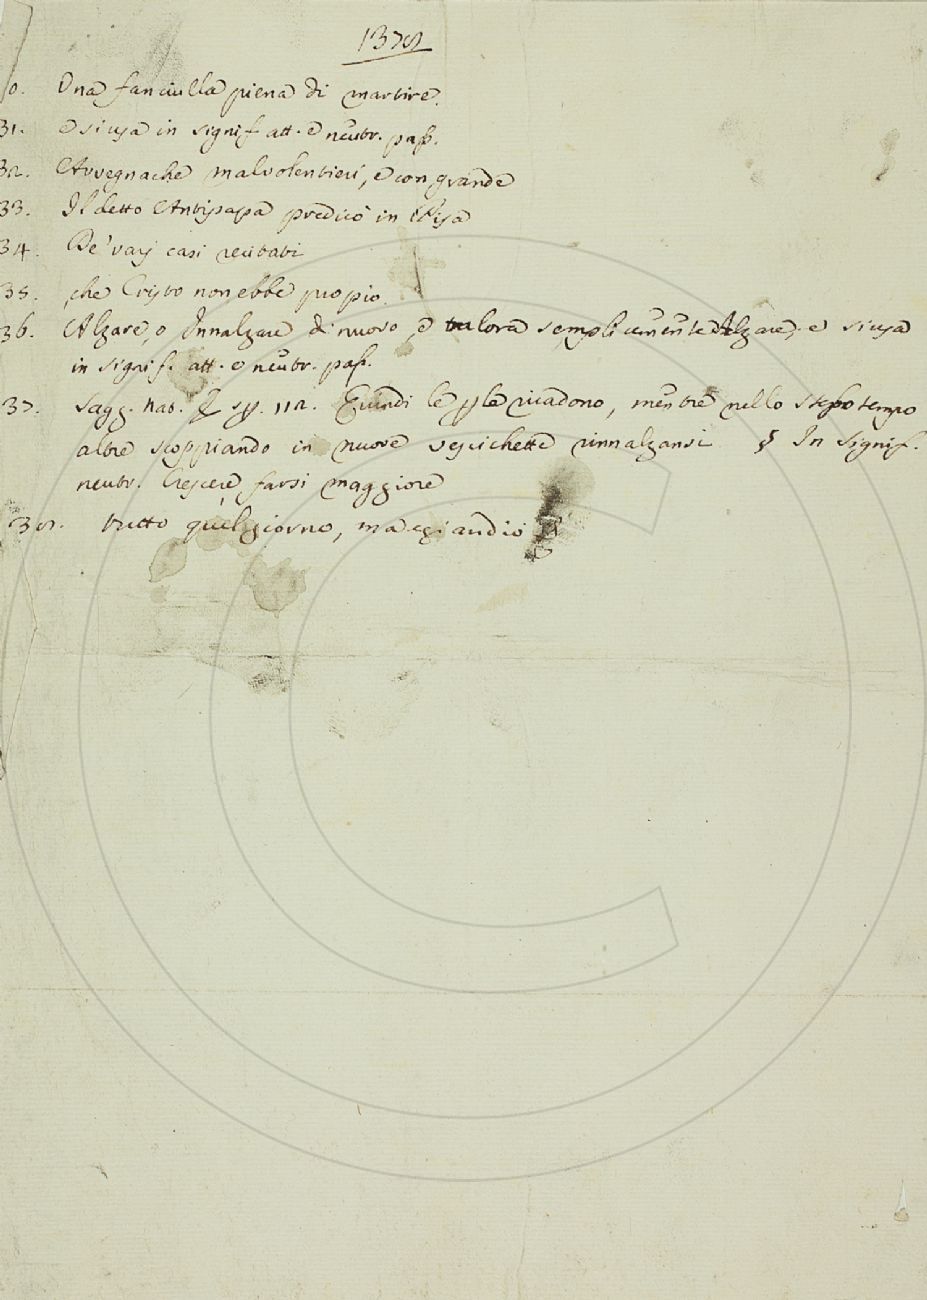 1378
0. Una fanciulla piena di martire.
31. e si usa in signif. att. e neutr. pass.
32. Avvegnachè malvolentieri, e con grande
33. Il detto Antipapa predicò in Pisa
34. De' varj casi recitati
35. che Cristo non ebbe propio.
36. Alzare, o Innalzare di nuovo, e talora semplicemente Alzare, e si usa
in signif. att. e neutr. pass.
37. Sagg. nat. esp. 112. Quindi le ricadono, mentre nello stesso tempo
altre scoppiando in nuove vescichette rinnalzansi § In signif.
neutr. Crescere, farsi maggiore
38. tutto quel giorno, ma eziandio